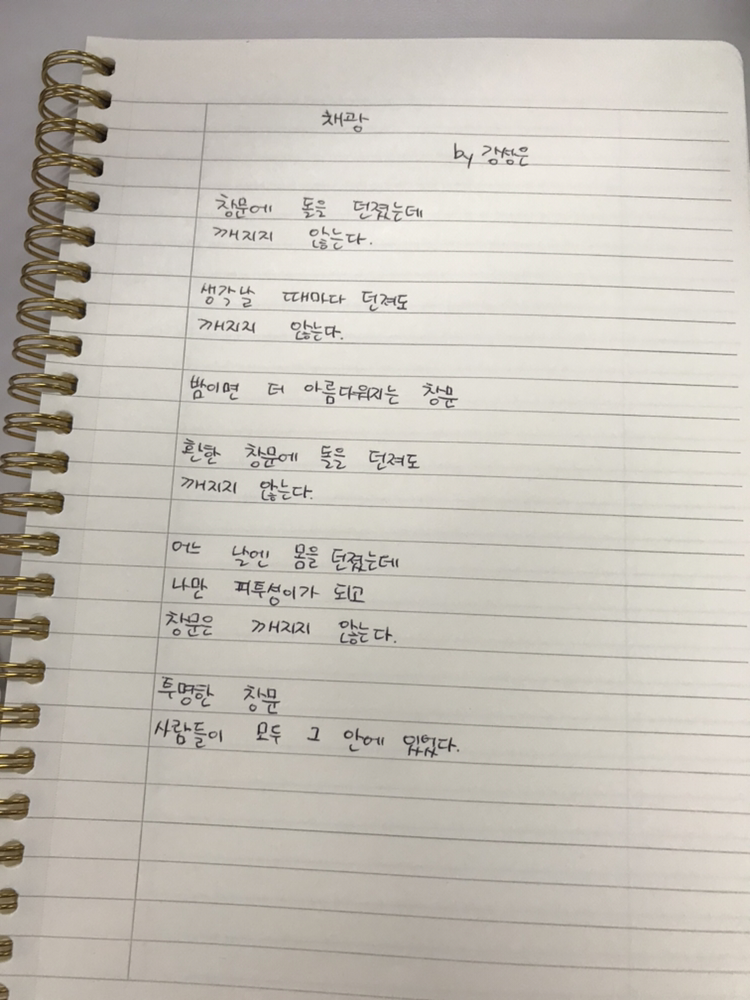 채광
by 강성은
창문에 돌을 던졌는데
깨지지 않는다.
생각날 때마다 던져도
깨지지 않는다.
밤이면 더 아름다워지는 창문
환한 창문에 돌을 던져도
깨지지 않는다.
어느 날엔 몸을 던졌는데
나만 피투성이가 되고
창문은 깨지지 않는다.
투명한 창문
사람들이 모두 그 안에 있었다.